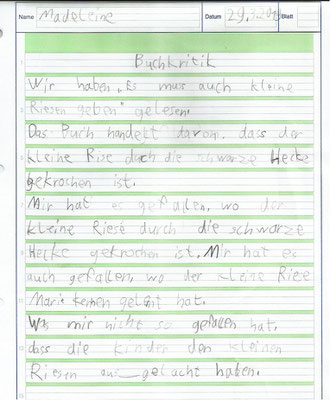 Name Madeleine Datum 29.3.201 Blatt
Buchkritik
Wir haben „Es mus auch kleine
Riesen geben" gelesen.
Das Puch handelt darom, dass der
kleine Rise dach die schwarze Hecke
gekrochen ist.
Mir hat es gefallen, wo der
kleine Riese durch die schwarze
Hecke gekrochen ist. Mir hat es
auch gefallen, wo der kleine Riese
Maria kennen gelernt hat.
Was mir nicht so gefallen hat,
dass die kinder den kleinen
Riesen aus gelacht haben.